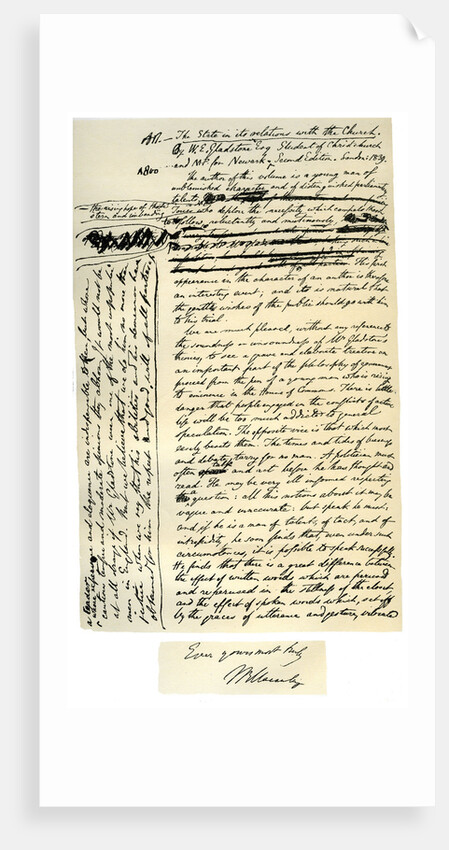 Art. — The State in its relations with the Church.
By W. E. Gladstone Esq Student of Christ church
and M.P. for Newark. Second Edition. London: 1839.
The author of this volume is a young man of
unblemished character and of distinguished parliamentary
talents,
the rising hope of those
stern and unbending
Tories who
reluctantly and mutinously
His first
appearance in the character of an author is therefore
an interesting event; and it is natural that
the gentle wishes of the public should go with him
to his trial.
We are much pleased, without any reference to
the soundness or unsoundness of Mr Gladstone's
theories, to see a grave and elaborate treatise on
an important part of the philosophy of government
proceed from the pen of a young man who is rising
to eminence in the House of Commons. There is little
danger that people engaged in the conflicts of active
life will be too much addicted to general
speculation. The opposite vice is that which most
easily besets them. The times and tides of business
and debate tarry for no man. A politician must
often talk and act before he has thought and
read. He may be very ill informed respecting
a question: all his notions about it may be
vague and inaccurate: but speak he must;
and, if he is a man of talents, of tact, and of
intrepidity, he soon finds that, even under such
circumstances, it is possible to speak successfully.
He finds that there is a great difference between
the effect of written words which are perused
and reperused in the stillness of the closet
and the effect of spoken words which, set off
by the graces of utterance and gesture, vibrated
whose experience and eloquence are indispensable to them, but whose
cautious temper and moderate opinions they abhor. It would not be
at all strange if Mr Gladstone were one of the most unpopular
men in England. But we believe that we do him no more than
justice when we say that his abilities and his demeanour have
obtained for him the respect and good will of all parties.
Ever yours most truly
T B Macaulay